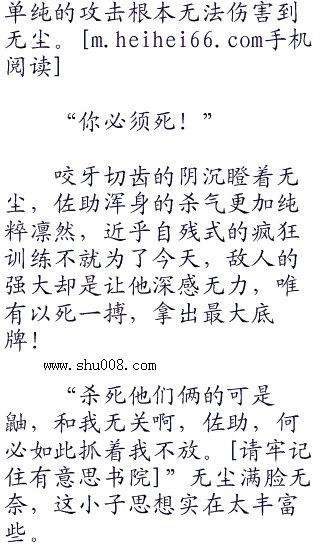 单纯的攻击根本无法伤害到
无尘。[m.heihei66.com手机
阅读]
“你必须死！”
咬牙切齿的阴沉瞪着无
尘，佐助浑身的杀气更加纯
粹凛然，近乎自残式的疯狂
训练不就为了今天，敌人的
强大却是让他深感无力，唯
有以死一搏，拿出最大底
牌！
www.shu008.com
“杀死他们俩的可是
鼬，和我无关啊，佐助，何
必如此抓着我不放。[请牢记
住有意思书院]”无尘满脸无
奈，这小子思想实在太丰富
些。